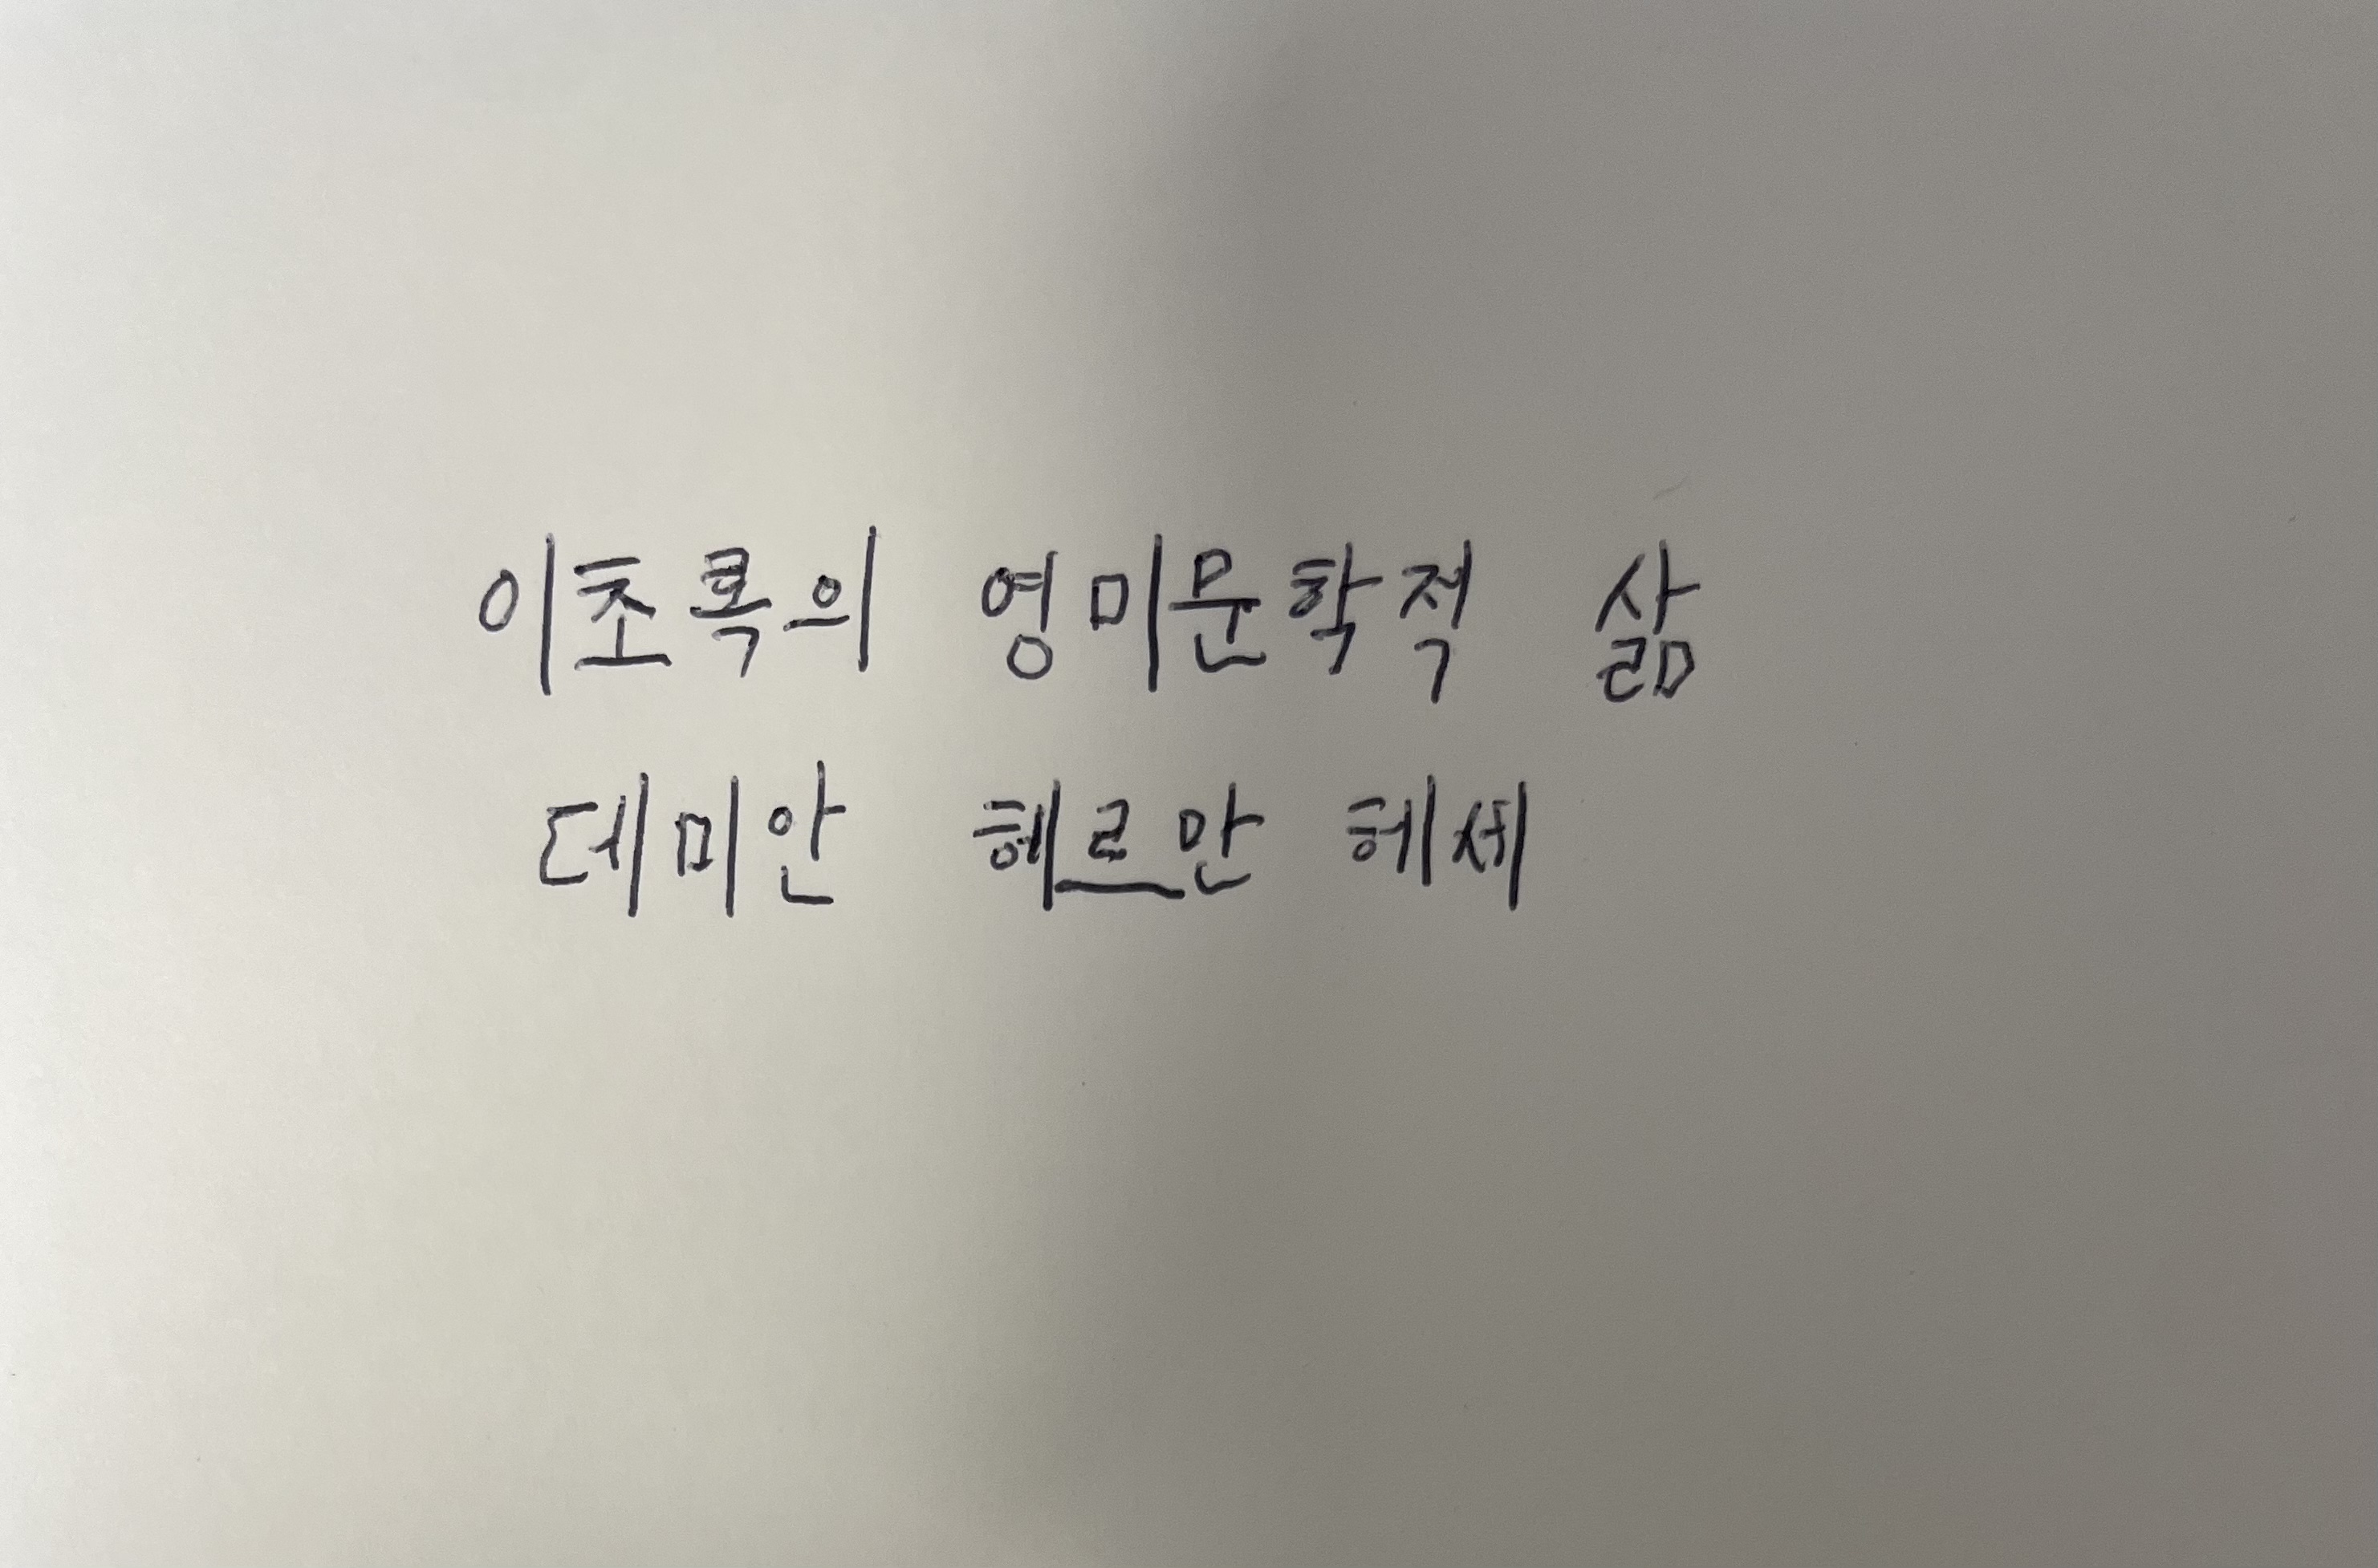 이초록의 영미문학적 삶
데미안 헤르만 헤세